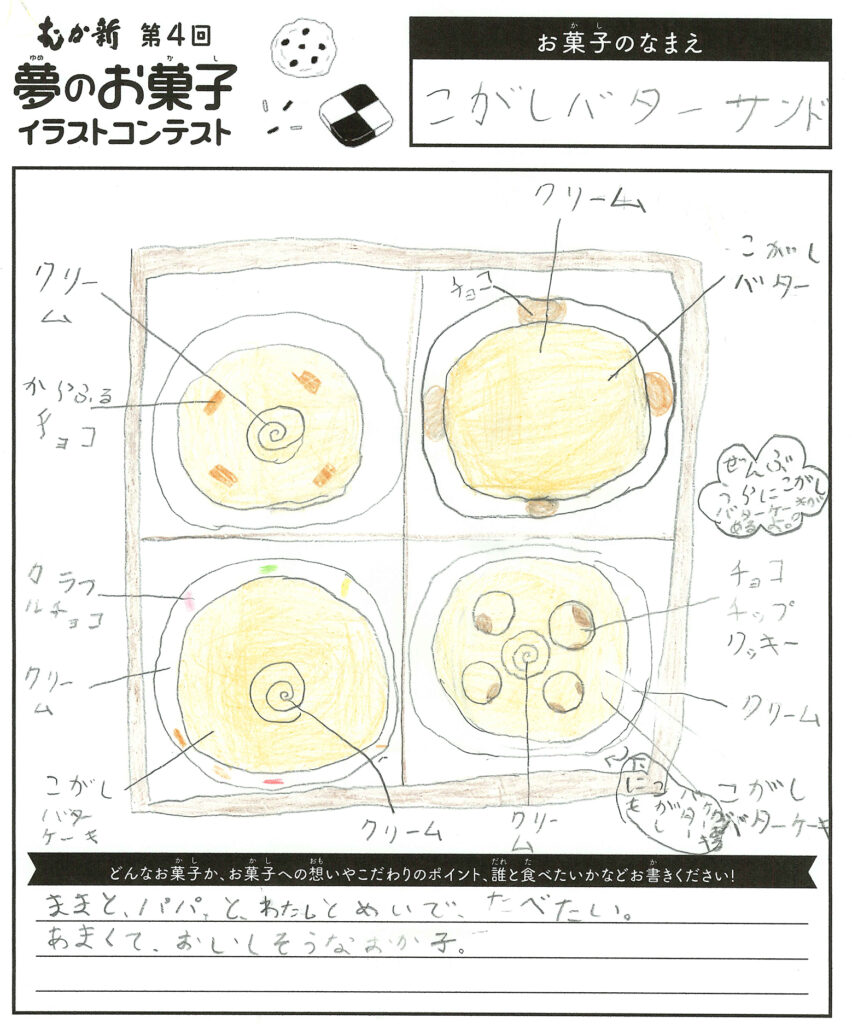 むか新 第4回
夢のお菓子
ゆめ かし
イラストコンテスト
お菓子のなまえ
かし
こがしバターサンド
クリーム
こがし
バター
チョコ
クリー
ム
からふる
チョコ
ぜんぶ
うらにこがし
バターケーキが
あるよ。
カラフ
ルチョコ
クリー
ム
こがし
バター
ケーキ
クリーム
クリー
ム
チョコ
チップ
クッキー
クリーム
こがし
バターケーキ
下にも
こがし
バター
どんなお菓子か、お菓子への想いやこだわりのポイント、誰と食べたいかなどお書きください!
かし かし おも だれ た か
ままと、パパ、と、わたしとめいで、たべたい。
あまくて、おいしそうなおか子。